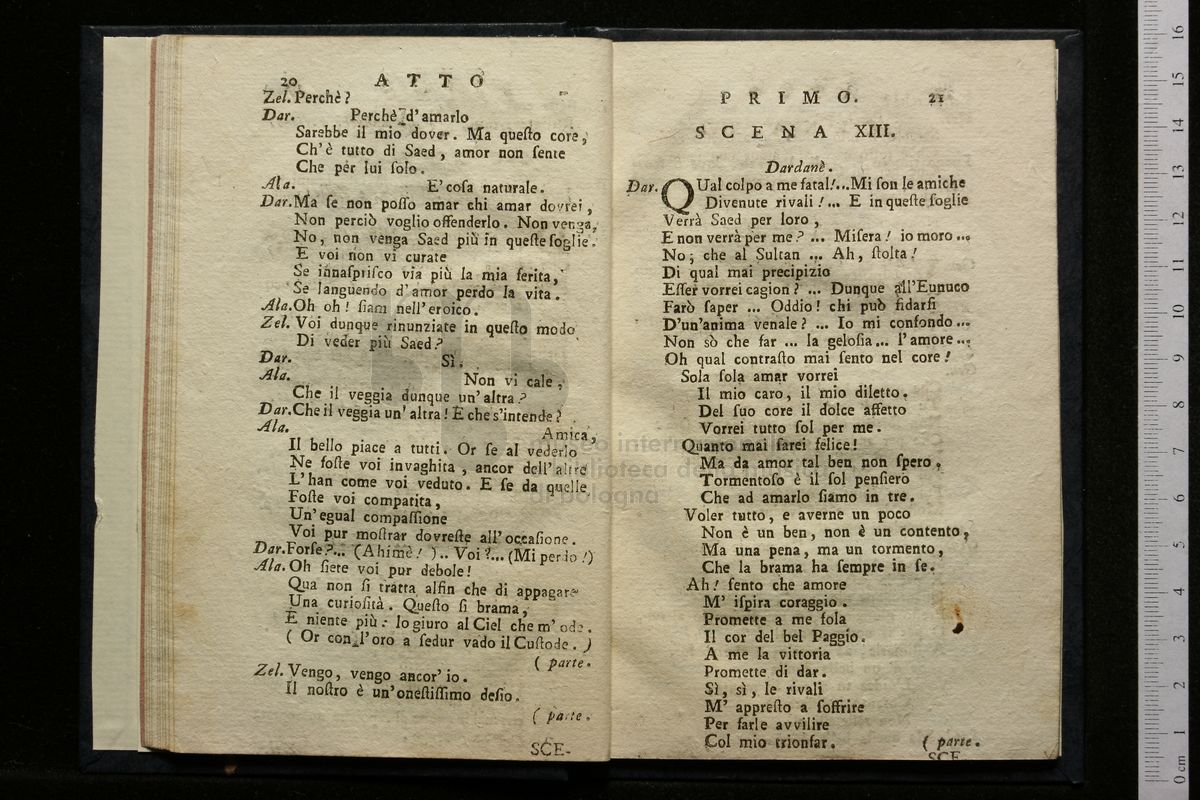 20 ATTO
Zel. Perchè?
Dar. Perchè d'amarlo
Sarebbe il mio dover. Ma queſto core,
Ch'è tutto di Saed, amor non ſente
Che per lui ſolo.
Ala. E' coſa naturale.
Dar. Ma ſe non poſſo amar chi amar dovrei,
Non perciò voglio offenderlo. Non venga,
No, non venga Saed più in queſte ſoglie.
E voi non vi curate
Se innaſpriſco via più la mia ferita,
Se languendo d'amor perdo la vita.
Ala. Oh oh! ſiam nell'eroico.
Zel. Voi dunque rinunziate in queſto modo
Di veder più Saed?
Dar. Sì.
Ala. Non vi cale,
Che il veggia dunque un'altra?
Dar. Che il veggia un'altra! E che s'intende?
Ala. Amica,
Il bello piace a tutti. Or ſe al vederlo
Ne foſte voi invaghita, ancor dell'altre
L'han come voi veduto. E ſe da quelle
Foſte voi compatita,
Un'egual compaſſione
Voi pur moſtrar dovreſte all'occaſione.
Dar. Forſe?... (Ahimè!).. Voi?... (Mi perdo!)
Ala. Oh ſiete voi pur debole!
Qua non ſi tratta alfin che di appagare
Una curioſità. Queſto ſi brama,
E niente più: Io giuro al Ciel che m'ode.
(Or con l'oro a ſedur vado il Cuſtode.)
(parte.
Zel. Vengo, vengo ancor'io.
Il noſtro è un'oneſtiſſimo deſio.
(parte.
SCE-
PRIMO. 21
SCENA XIII.
Dardanè.
Dar. QUal colpo a me fatal!...Mi ſon le amiche
Divenute rivali!... E in queſte ſoglie
Verrà Saed per loro,
E non verrà per me? ... Miſera! io moro ...
No; che al Sultan ... Ah, ſtolta!
Di qual mai precipizio
Eſſer vorrei cagion? ... Dunque all'Eunuco
Farò ſaper ... Oddio! chi può fidarſi
D'un'anima venale? ... Io mi confondo ...
Non sò che far ... la geloſia... l'amore...
Oh qual contraſto mai ſento nel core!
Sola ſola amar vorrei
Il mio caro, il mio diletto.
Del ſuo core il dolce affetto
Vorrei tutto ſol per me.
Quanto mai ſarei felice!
Ma da amor tal ben non ſpero,
Tormentoſo è il ſol penſiero
Che ad amarlo ſiamo in tre.
Voler tutto, e averne un poco
Non è un ben, non è un contento,
Ma una pena, ma un tormento,
Che la brama ha ſempre in ſe.
Ah! ſento che amore
M' iſpira coraggio.
Promette a me ſola
Il cor del bel Paggio.
A me la vittoria
Promette di dar.
Sì, sì, le rivali
M' appreſto a ſoffrire
Per farle avvilire
Col mio trionfar. (parte.
SCE
museo internazionale
biblioteca della musica
di bologna
0 cm 1 2 3 4 5 6 7 8 9 10 11 12 13 14 15 16